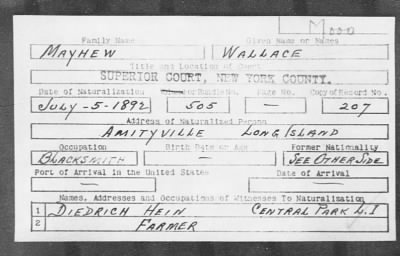 M000
Family Name Given Name or Names
MAYHEW WALLACE
Title and Location of Court
SUPERIOR COURT, NEW YORK COUNTY.
Date of Naturalization or Bundle No. Page No. Copy of Record No.
JULY-5-1892 505 — 207
Address of Naturalized Person
AMITYVILLE LONG ISLAND
Occupation Birth Date or Age Former Nationality
BLACKSMITH — SEE OTHER SIDE
Port of Arrival in the United States Date of Arrival
— —
Names, Addresses and Occupations of Witnesses To Naturalization
1 DIEDRICH HEIN CENTRAL PARK L.I
2 FARMER